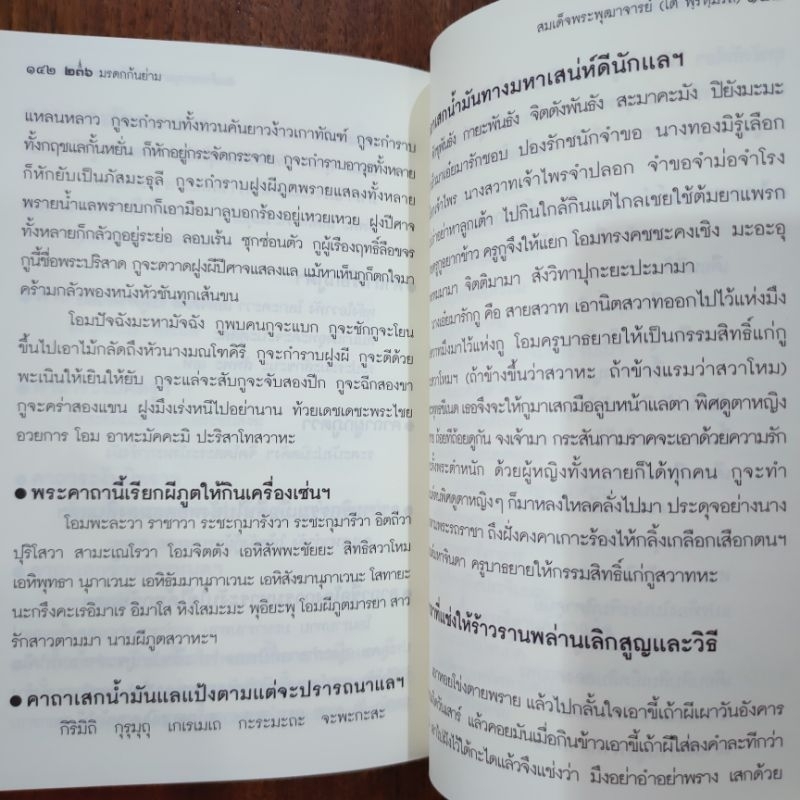 ๑๔๒ ๒๓๖ มรดกก้นย่าม
แหลนหลาว กูจะกำราบทั้งทวนคันยาวง้าวเกาทัณฑ์ กูจะกำราบ
ทั้งกฤชแลกั้นหยั่น ก็หักอยู่กระจัดกระจาย กูจะกำราบอาวุธทั้งหลาย
ก็หักยับเป็นภัสมะธุลี กูจะกำราบฝูงผีภูตพรายแสลงทั้งหลาย
พรายน้ำแลพรายบกก็เอามือมาลูบอกร้องอยู่เหวยเหวย ฝูงปีศาจ
ทั้งหลายก็กลัวกูอยู่ระย่อ ลอบเร้น ซุกซ่อนตัว กูผู้เรืองฤทธิ์ลือขจร
กูนี้ชื่อพระปริสาด กูจะตวาดฝูงผีปีศาจแสลงแล แม้หาเห็นกูก็ตกใจมา
คร้ามกลัวพองหนังหัวชันทุกเส้นขน
โอมปัจฉังมะหามัจฉัง กูพบคนกูจะแบก กูจะชักกูจะโยน
ขึ้นไปเอาไม้กลัดถึงหัวนางมณโฑคิรี กูจะกำราบฝูงผี กูจะตีด้วย
พะเนินให้เยินให้ยับ กูจะแล่จะสับกูจะจับสองปีก กูจะฉีกสองขา
กูจะคร่าสองแขน ฝูงมึงเร่งหนีไปอย่านาน ท้วยเดชเดชะพระไชย
อวยการ โอม อาหะมัคคะมิ ปะริสาโทสวาหะ
● พระคาถานี้เรียกผีภูตให้กินเครื่องเซ่นฯ
โอมพะละวา ราชาวา ระชะกุมารังวา ระชะกุมารีวา อิตถีวา
ปุริโสวา สามะเณโรวา โอมจิตตัง เอหิสัพพะชัยยะ สิทธิสวาโหม
เอหิพุทธา นุภาเวนะ เอหิธัมมานุภาเวนะ เอหิสังฆานุภาเวนะ โสทายะ
นะกรึงคะเรอิมาเร อิมาโส หิงโสมะมะ พุอิยะพุ โอมผีภูตมารยา สาว
รักสาวตามมา นามผีภูตสวาหะฯ
● คาถาเสกน้ำมันแลแป้งตามแต่จะปรารถนาแลฯ
กิริมิถิ กุรุมุถุ เกเรเมเถ กะระมะถะ จะพะกะสะ
สมเด็จพระพุฒาจารย์ (โต
เสกน้ำมันทางมหาเสน่ห์ดีนักแลฯ
กายะพันธัง จิตตังพันธัง สะมาคะมัง ปิยังมะมะ
มาเอ๋ยมารักชอบ ปองรักชนักจำขอ นางทองมิรู้เลือก
เจ้าไพร นางสวาทเจ้าไพรจำปลอก จำขอจำม่อจำโรง
อย่าหาลูกเต้า ไปกินใกล้กินแต่ไกลเชยใช้ต้มยาแพรก
กูอยากข้าว ครูกูจึงให้แยก โอมทรงคชชะคงเชิง มะอะอุ
มามา จิตติมามา สังวิทาปุกะยะปะมามา
นางเอ๋ยมารักกู คือ สายสวาท เอานิตสวาทออกไปไว้แห่งมึง
มึงมาไว้แห่งกู โอมครูบาธยายให้เป็นกรรมสิทธิ์แก่กู
(ถ้าข้างขึ้นว่าสวาหะ ถ้าข้างแรมว่าสวาโหม)
เธอจึงจะให้กูมาเสกมือลูบหน้าแลตา พิศดูตาหญิง
ถ้อยทีถ้อยดูกัน จงเจ้ามา กระสันกามราคจะเอาด้วยความรัก
พระตำหนัก ด้วยผู้หญิงทั้งหลายก็ได้ทุกคน กูจะทำ
พิศดูตาหญิงๆ ก็มาหลงใหลคลั่งไปมา ประดุจอย่างนาง
ตามพระรถราชา ถึงฝั่งคงคาเกาะร้องไห้กลิ้งเกลือกเสือกตนฯ
จินดา ครูบาธยายให้กรรมสิทธิ์แก่กูสวาทหะ
ที่แช่งให้ร้าวรานพล่านเลิกสูญและวิธี
เอาหอยโข่งตายพราย แล้วไปกลั้นใจเอาขี้เถ้าผีเผาวันอังคาร
วันเสาร์ แล้วคอยมันเมื่อกินข้าวเอาขี้เถ้าผีใส่ลงคำละทีกว่า
ไปฝังไว้ใต้กะไดแล้วจึงแช่งว่า มึงอย่าอำอย่าพราง เสกด้วย